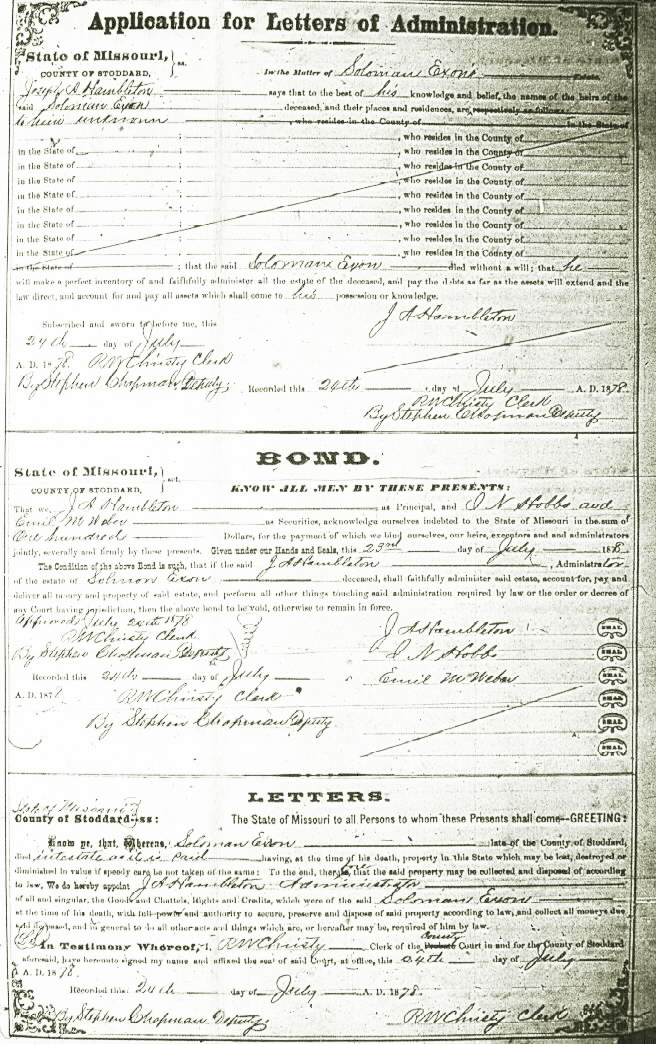 Application for Letters of Administration.
State of Missouri, } ss.
COUNTY OF STODDARD,
In the Matter of Soloman Exons Estate.
Joseph A Hambleton says that to the best of his knowledge and belief, the names of the heirs of the
said Soloman Exon deceased, and their places and residences, are respectively as follows
to him unknown , who resides in the County of in the State of
, who resides in the County of
in the State of , who resides in the County of
in the State of , who resides in the County of
in the State of , who resides in the County of
in the State of , who resides in the County of
in the State of , who resides in the County of
in the State of , who resides in the County of
in the State of , who resides in the County of
in the State of , who resides in the County of
in the State of ; that the said Soloman Exon died without a will; that he
will make a perfect inventory of and faithfully administer all the estate of the deceased, and pay the debts as far as the assets will extend and the
law direct, and account for and pay all assets which shall come to his possession or knowledge.
J A Hambleton
Subscribed and sworn to before me, this
24th day of July
A. D. 1878. RW Christy Clerk
By Stephen Chapman Deputy; Recorded this 24th day of July A. D. 1878.
RW Christy Clerk
By Stephen Chapman Deputy
BOND.
State of Missouri, } sct.
COUNTY OF STODDARD,
KNOW ALL MEN BY THESE PRESENTS:
That we, J A Hambleton as Principal, and I N Hobbs and
Emil M Weber as Securities, acknowledge ourselves indebted to the State of Missouri in the sum of
One hundred Dollars, for the payment of which we bind ourselves, our heirs, executors and administrators
jointly, severally and firmly by these presents. Given under our Hands and Seals, this 23rd day of July 1878.
The Condition of the above Bond is such, that if the said J A Hambleton , Administrator
of the estate of Solmon Exon deceased, shall faithfully administer said estate, account for, pay and
deliver all money and property of said estate, and perform all other things touching said administration required by law or the order or decree of
any Court having jurisdiction, then the above bond to be void, otherwise to remain in force.
Approved July 24th 1878
RW Christy Clerk
By Stephen Chapman Deputy
J A Hambleton SEAL
I N Hobbs SEAL
Recorded this 24th day of July
Emil M Weber SEAL
A. D. 1878 RW Christy Clerk SEAL
By Stephen Chapman Deputy
SEAL
LETTERS.
State of Missouri
County of Stoddard--ss: The State of Missouri to all Persons to whom these Presents shall come--GREETING:
Know ye, that, Whereas, Soloman Exon late of the County of Stoddard,
died intestate as it is said having, at the time of his death, property in this State which may be lost, destroyed or
diminished in value if speedy care be not taken of the same: To the end, therefore, that the said property may be collected and disposed of according
to law, We do hereby appoint J A Hambleton Administrator
of all and singular, the Goods and Chattels, Rights and Credits, which were of the said Soloman Exon
at the time of his death, with full power and authority to secure, preserve and dispose of said property according to law, and collect all moneys due
said deceased, and in general to do all other acts and things which are, or hereafter may be, required of him by law.
In Testimony Whereof, I, RW Christy Clerk of the Probate County Court in and for the County of Stoddard
aforesaid, have hereunto signed my name and affixed the seal of said Court, at office, this 24th day of July
A. D. 1878.
Recorded this 24th day of July A. D. 1878.
By Stephen Chapman Deputy RW Christy Clerk